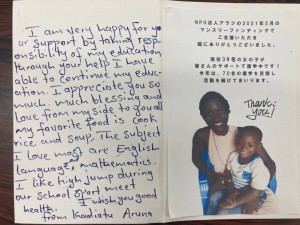 I am very happy for yo
ur support by taking resp
onsibility of my education
through your help I have
able to continue my edu-
cation. I appreciate you so
much. much blessing and
love from my side to you all
my favorite food is Cook
rice and soup. The subject
I love most are English
language, mathematics.
I like high jump during
our school sport meet
I wish you good
health.
from Kadiatu Aruna
NPO法人アラジの2021年5月の
マンスリーファンディングで
ご支援いただき
誠にありがとうございました。
現在39名の女の子が
皆さんのサポートで復学中です！
今年は、70名の復学を目指し
活動を続けてまいります。
Thank
you!